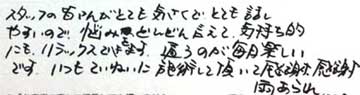 スタッフの皆さんがとても気さくでとても話し
やすいので 悩みどんどん言えて、気持ち的
にも、リラックスできます。通うのが毎月楽しい
です。いつもていねいに施術して頂いて感謝感謝
雨あられ